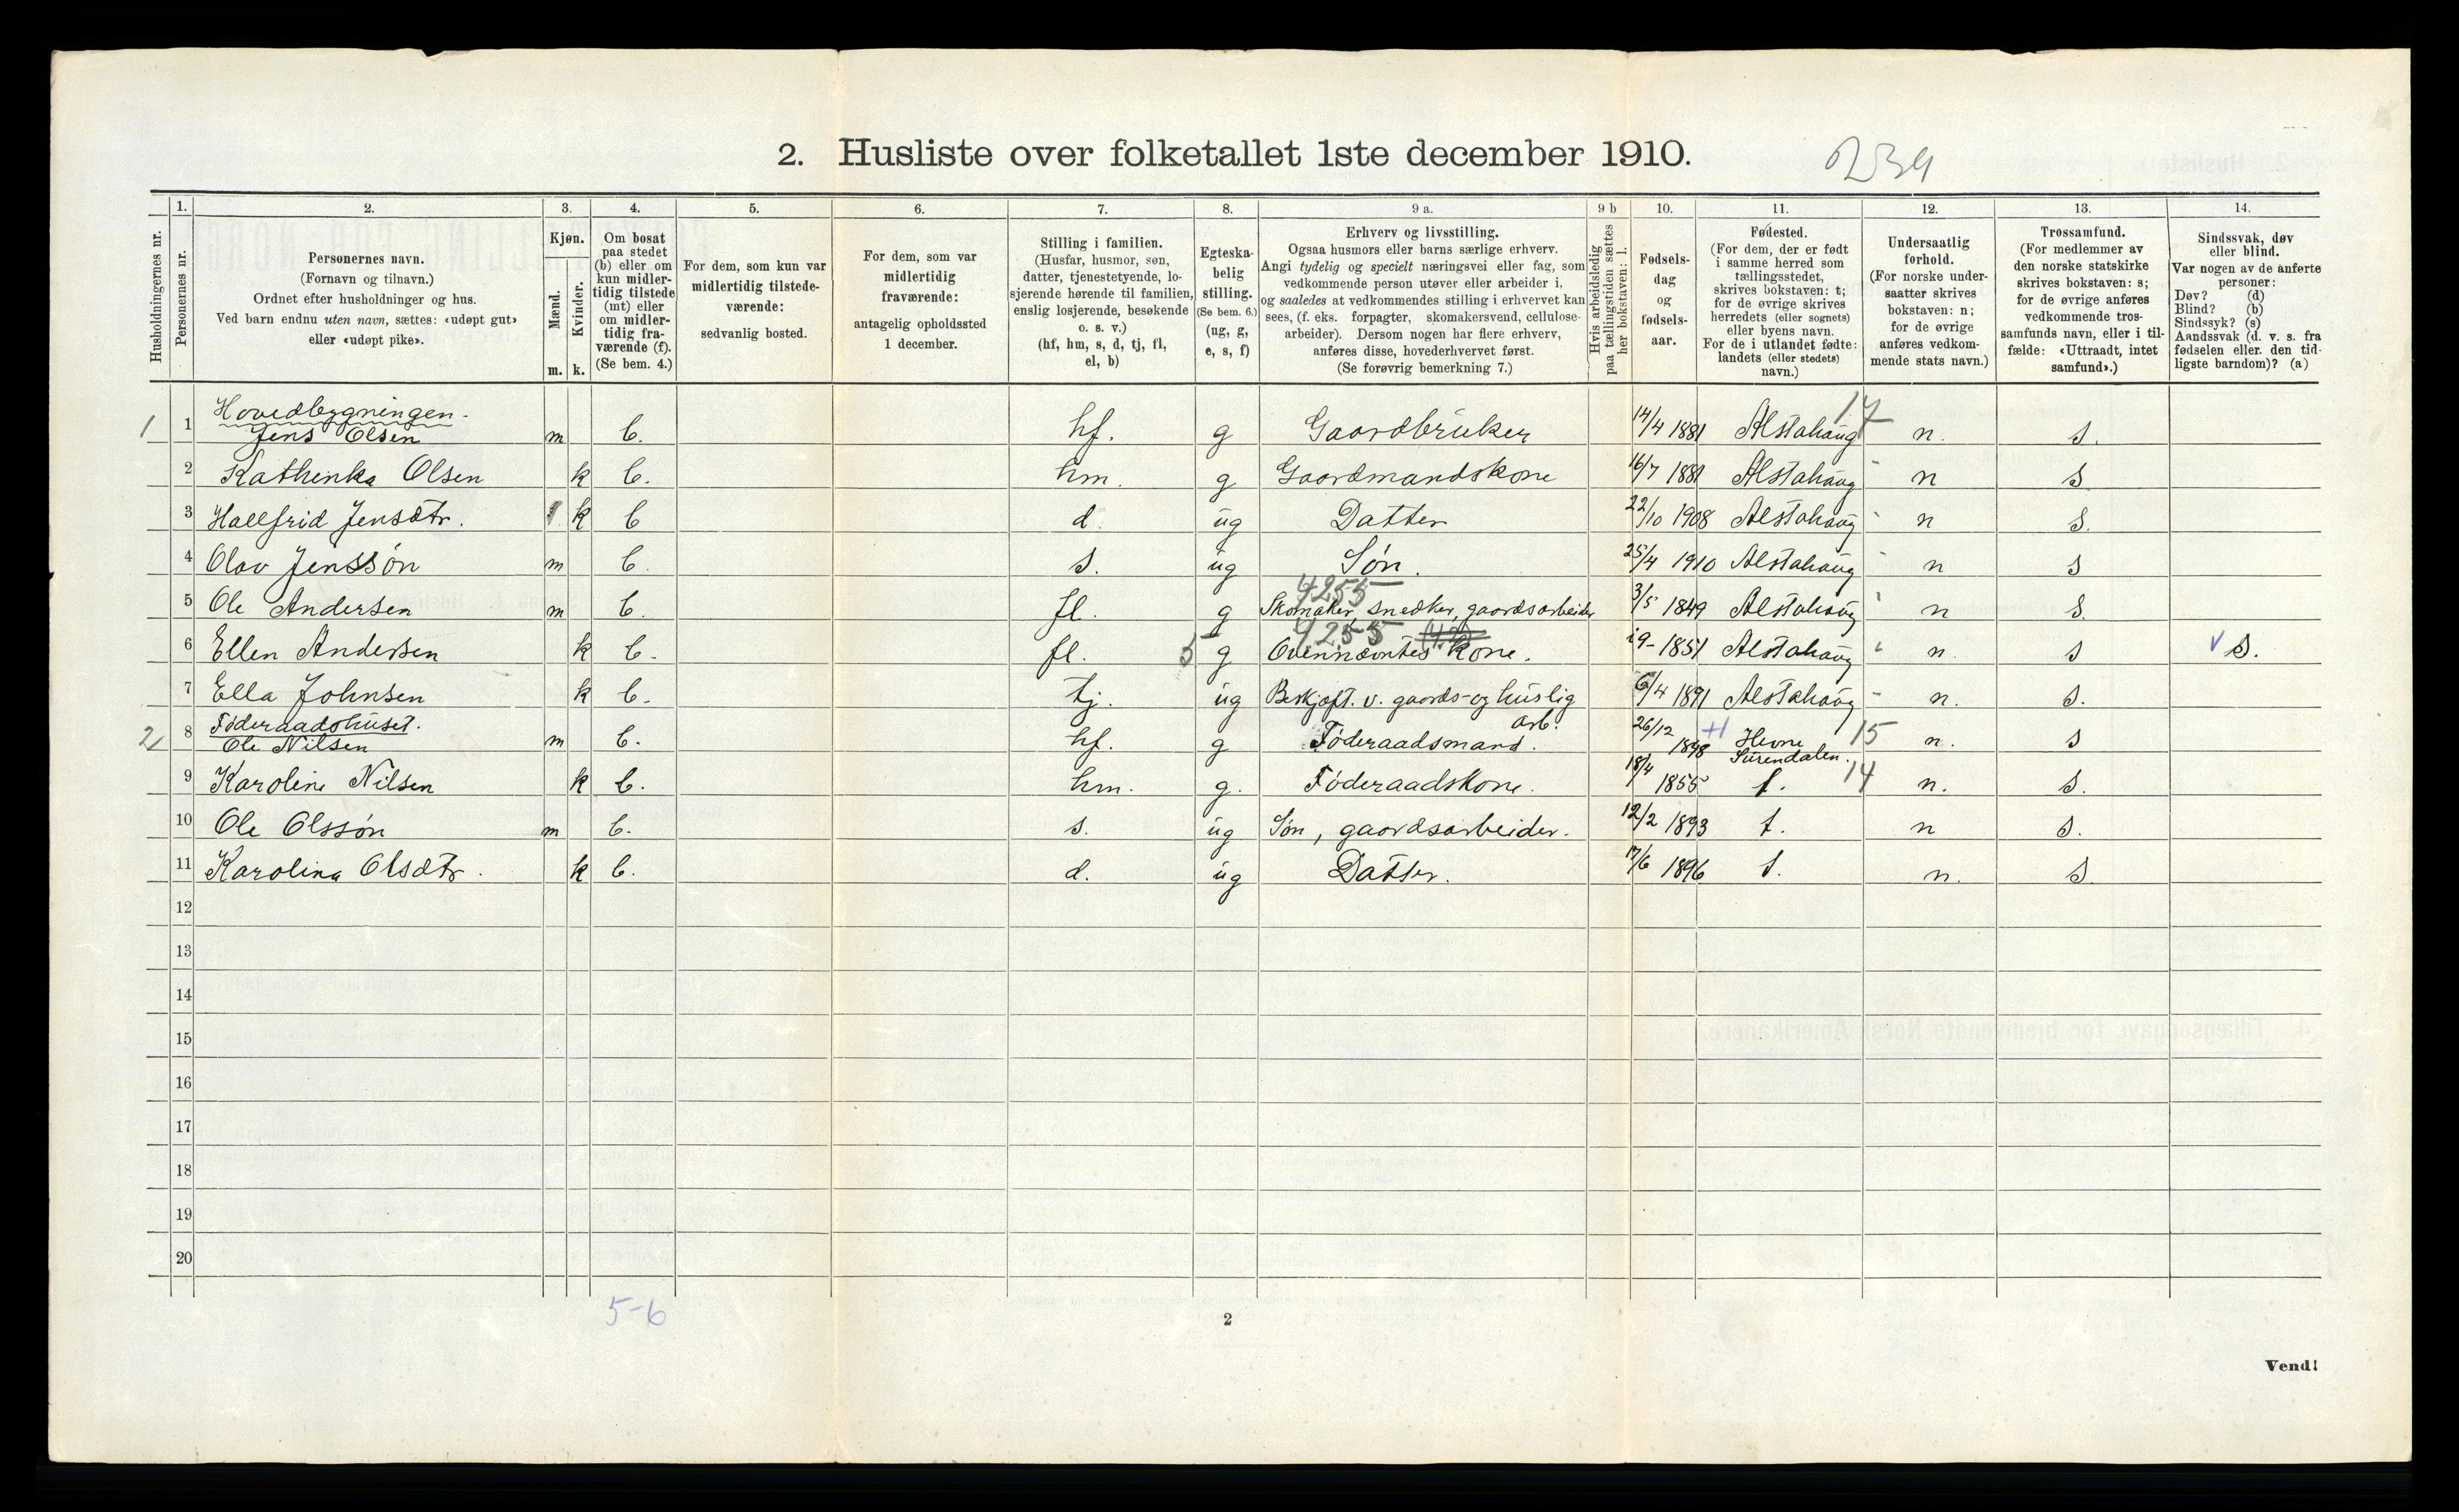 2. Husliste over folketallet 1ste december 1910.
239
Husholdningernes nr.
1. Personernes nr.
2. Personernes navn. (Fornavn og tilnavn.) Ordnet efter husholdninger og hus. Ved barn endnu uten navn, sættes: «udøpt gut» eller «udøpt pike».
3. Kjøn. Mænd. m. Kvinder. k.
4. Om bosat paa stedet (b) eller om kun midlertidig tilstede (mt) eller om midlertidig fraværende (f). (Se bem. 4.)
5. For dem, som kun var midlertidig tilstedeværende: sedvanlig bosted.
6. For dem, som var midlertidig fraværende: antagelig opholdssted 1 december.
7. Stilling i familien. (Husfar, husmor, søn, datter, tjenestetyende, losjerende hørende til familien, enslig losjerende, besøkende o. s. v.) (hf, hm, s, d, tj, fl, el, b)
8. Egteskabelig stilling. (Se bem. 6.) (ug, g, e, s, f)
9 a. Erhverv og livsstilling. Ogsaa husmors eller barns særlige erhverv. Angi tydelig og specielt næringsvei eller fag, som vedkommende person utøver eller arbeider i, og saaledes at vedkommendes stilling i erhvervet kan sees, (f. eks. forpagter, skomakersvend, cellulosearbeider). Dersom nogen har flere erhverv, anføres disse, hovederhvervet først. (Se forøvrig bemerkning 7.)
9 b Hvis arbeidsledig paa tællingstiden sættes her bokstaven: l.
10. Fødselsdag og fødselsaar.
11. Fødested. (For dem, der er født i samme herred som tællingsstedet, skrives bokstaven: t; for de øvrige skrives herredets (eller sognets) eller byens navn. For de i utlandet fødte: landets (eller stedets) navn.)
12. Undersaatlig forhold. (For norske undersaatter skrives bokstaven: n; for de øvrige anføres vedkommende stats navn.)
13. Trossamfund. (For medlemmer av den norske statskirke skrives bokstaven: s; for de øvrige anføres vedkommende trossamfunds navn, eller i tilfælde: «Uttraadt, intet samfund».)
14. Sindssvak, døv eller blind. Var nogen av de anførte personer: Døv? (d) Blind? (b) Sindssyk? (s) Aandssvak (d. v. s. fra fødselen eller den tidligste barndom)? (a)
Hovedbygningen.
1 1 Jens Olsen m b. hf. g Gaardbruker 14/4 1881 Alstahaug 17 n. s.
2 Kathinka Olsen k b. hm. g Gaardmandskone 16/7 1881 Alstahaug n s
3 Hallfrid Jensdtr. k b d. ug Datter 22/10 1908 Alstahaug n s.
4 Olav Jenssøn m b. s. ug Søn. 25/4 1910 Alstahaug n s
4255
5 Ole Andersen m b. fl. g Skomaker, snedker, gaardsarbeider 3/5 1849 Alstahaug n s
4255
6 Ellen Andersen k b. fl. 5 g Ovennævntes kone. 19- 1851 Alstahaug n. s v s.
7 Ella Johnsen k b. tj. ug Beskjæft. v. gaards- og huslig arb. 6/4 1891 Alstahaug n. s.
Føderaadshuset.
2 8 Ole Nilsen m b. hf. g Føderaadsmand. 26/12 1848 Hevne Surendalen. 15 n. s
9 Karoline Nilsen k b. hm. g. Føderaadskone. 18/4 1855 t. 14 n. s.
10 Ole Olssøn m b. s. ug Søn, gaardsarbeider. 12/2 1893 t. n s.
11 Karolina Olsdtr. k b. d. ug Datter. 17/6 1896 t. n. s
12
13
14
15
16
17
18
19
20
5-6
2
Vend!